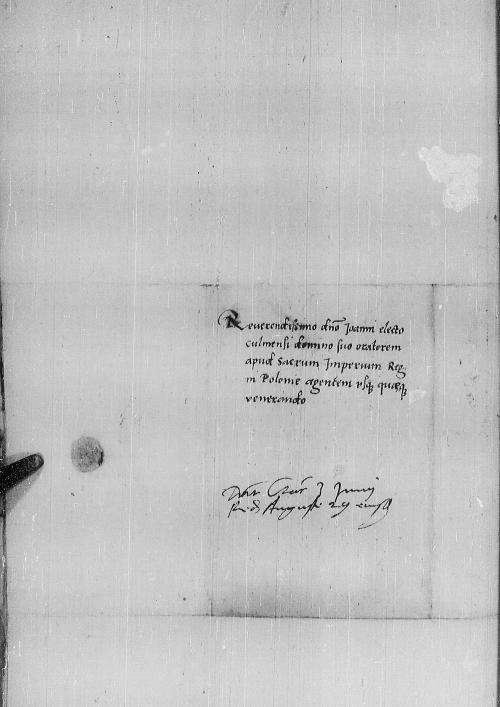 Reverendissimo dno Joanni electo
culmensi domino suo oratorem
apud Sacrum Imperium Reg
ni Polonie agentem usq quaq
venerando
Dat 3 Junii
Red Auguste 29 eiusd